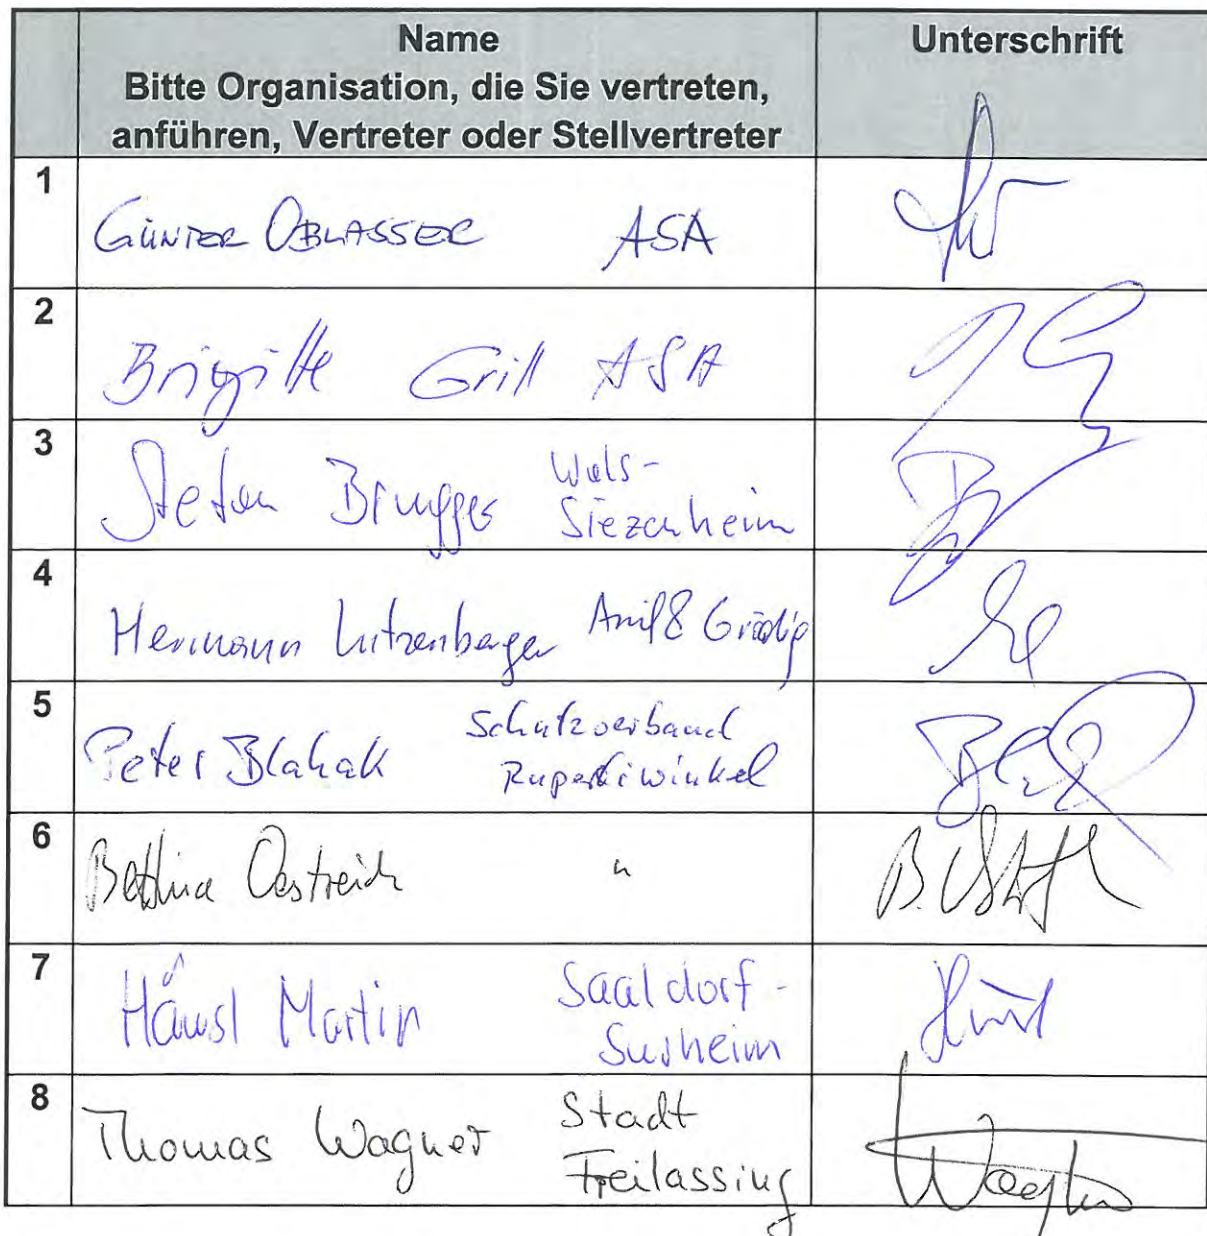 Name
Bitte Organisation, die Sie vertreten,
anführen, Vertreter oder Stellvertreter
Unterschrift
1
GÜNTER OBLASSER ASA
2
Brigitte Grill ASA
3
Stefan Brugger Wals-
Siezenheim
4
Hermann Lutzenberger Anif & Grödig
5
Peter Blahak Schutzverband
Rupertiwinkel
6
Bettina Oestreich "
7
Häusl Martin Saaldorf-
Surheim
8
Thomas Wagner Stadt
Freilassing